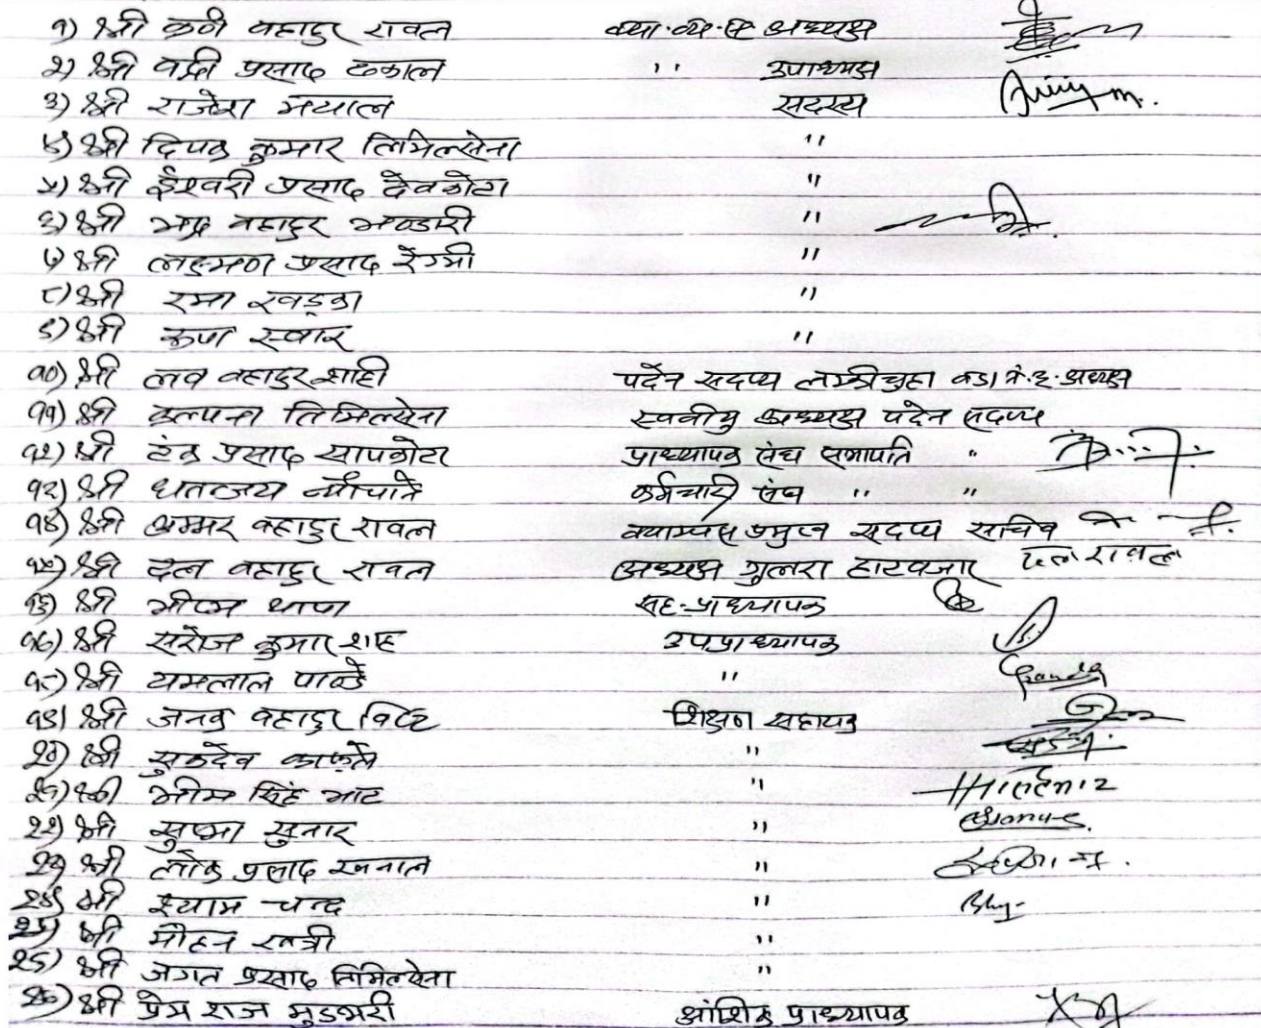 १) श्री कर्ण बहादुर रावल क्या.व्य.स अध्यक्ष
२) श्री बद्री प्रसाद ढकाल " उपाध्यक्ष
३) श्री राजेश मयाल सदस्य
४) श्री दिपक कुमार तिमिल्सेना "
५) श्री ईश्वरी प्रसाद देवकोटा "
६) श्री भद्र बहादुर भण्डारी "
७) श्री लक्ष्मण प्रसाद रेग्मी "
८) श्री रमा खड्का "
९) श्री कृष्ण स्वार "
१०) श्री लव बहादुर शाही पदेन सदस्य लम्कीचुहा वडा नं.३. अध्यक्ष
११) श्री कल्पना तिमिल्सेना स्ववीयु अध्यक्ष पदेन सदस्य
१२) श्री टंक प्रसाद सापकोटा प्राध्यापक संघ सभापति "
१३) श्री धनञ्जय न्यौपाने कर्मचारी संघ " "
१४) श्री अम्मर बहादुर रावल क्याम्पस प्रमुख सदस्य सचिव
१५) श्री दल बहादुर रावल अध्यक्ष गुलरा हाटबजार दल रावल
१६) श्री भीष्म थापा सह-प्राध्यापक
१७) श्री सरोज कुमार शाह उपप्राध्यापक
१८) श्री यमलाल पाण्डे "
१९) श्री जनक बहादुर विष्ट शिक्षण सहायक
२०) श्री सुकदेव काफ्ले "
२१) श्री भीम सिंह भाट "
२२) श्री सुष्मा सुनार "
२३) श्री लोक प्रसाद खनाल "
२४) श्री श्याम चन्द "
२५) श्री मोहन खत्री "
२६) श्री जगत प्रसाद तिमिल्सेना "
२७) श्री प्रेम राज मुडभरी आंशिक प्राध्यापक